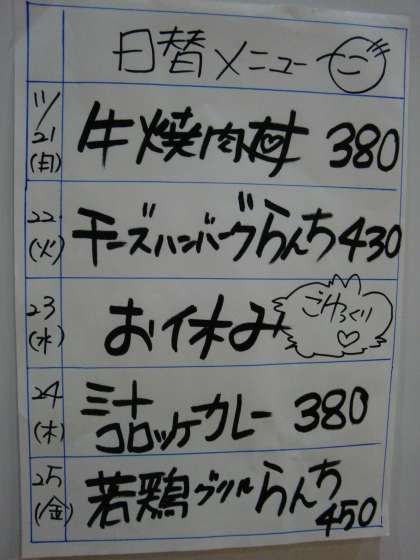 日替メニュー
11/21
(月)
牛焼肉丼 380
22
(火)
チーズハンバーグらんち 430
23
(水)
お休み
ごゆっくり♡
24
(木)
ミート
コロッケカレー 380
25
(金)
若鶏グリルらんち
450